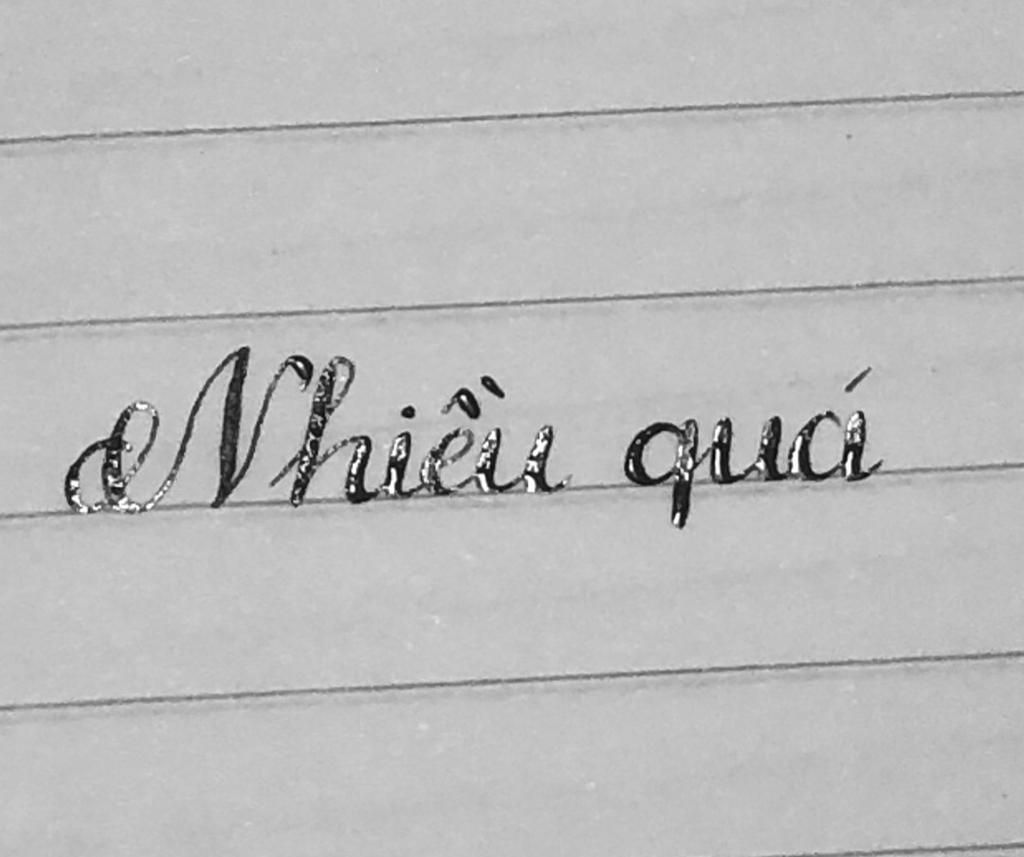 Nhiều quá